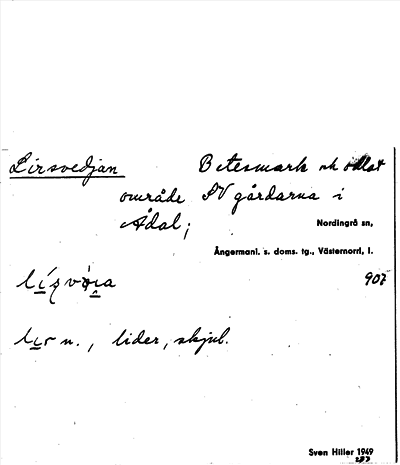 Lirsvedjan Betesmark ok odlat
område SV gårdarna i
Ådal;
Nordingrå sn,
Ångermanl. s. doms. tg., Västernorrl. l.
907
lir n., lider, skjul.
Sven Hiller 1949